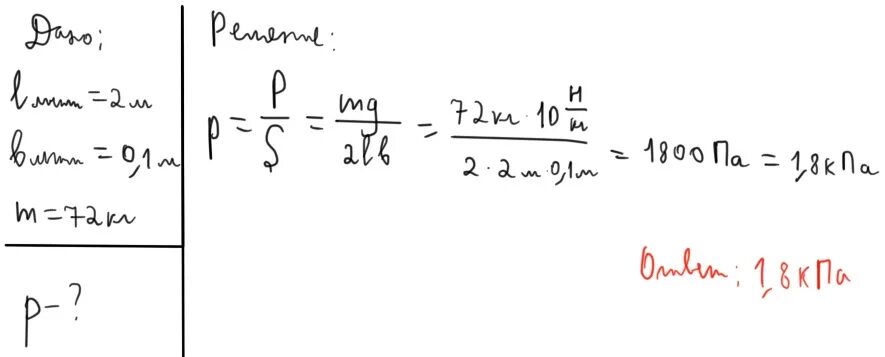 Дано:
l лыж = 2 м
b лыж = 0,1 м
m = 72 кг
p - ?
Решение:
p = P/S = mg/2lb = 72 кг · 10 Н/кг / 2 · 2 м · 0,1 м = 1800 Па = 1,8 кПа
Ответ: 1,8 кПа